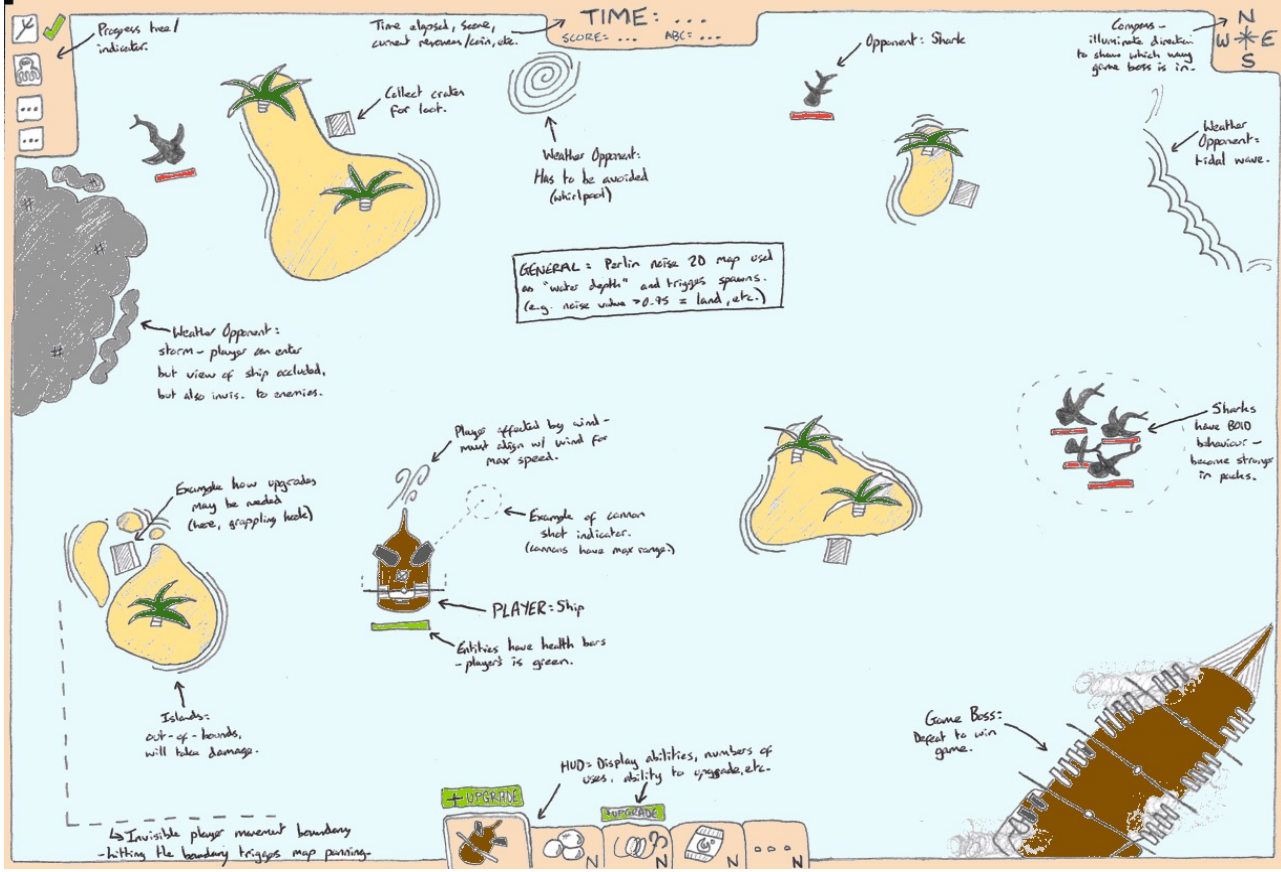 Progress tree/
indicator.
Time elapsed, score,
current revenues/coin, etc.
TIME: ...
SCORE: ... ABC: ...
Opponent: Shark
Compass -
illuminate direction
to show which way
game boss is in.
N
W E
S
Collect crates
for loot.
Weather Opponent:
Has to be avoided
(whirlpool)
Weather
Opponent:
tidal wave.
GENERAL: Perlin noise 2D map used
as "water depth" and triggers spawns.
(e.g. noise value >0.95 = land, etc.)
Weather Opponent:
storm - player can enter
but view of ship occluded,
but also invis. to enemies.
Player affected by wind -
must align w/ wind for
max speed.
Sharks
have BOID
behaviour -
become stronger
in packs.
Example how upgrades
may be needed
(here, grappling hook)
Example of cannon
shot indicator.
(cannons have max range.)
PLAYER: Ship
Entities have health bars
- player's is green.
Islands:
out-of-bounds,
will take damage.
Game Boss:
Defeat to win
game.
HUD: Display abilities, numbers of
uses, ability to upgrade, etc.
+ UPGRADE
+UPGRADE
↳ Invisible player movement boundary
- hitting the boundary triggers map panning.
N
N
N
... N